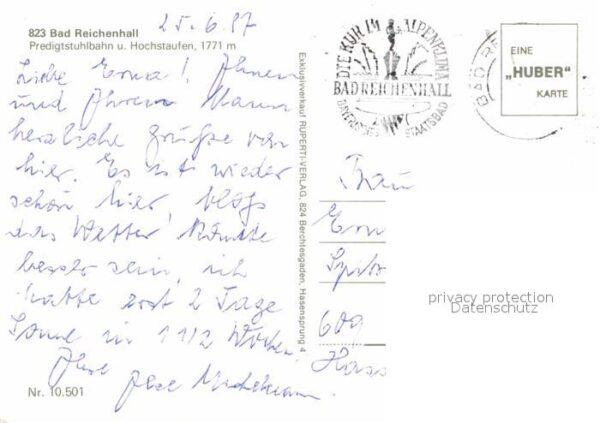 25.6.87
823 Bad Reichenhall
Predigtstuhlbahn u. Hochstaufen, 1771 m
Liebe Erna! Ihnen
und Ihrem Mann
herzliche Grüße von
hier. Es ist wieder
schön hier, bloß
das Wetter könnte
besser sein, ich
hatte erst 2 Tage
Sonne in 1 1/2 Wochen.
Ihre
Nr. 10.501
Exklusivverkauf RUPERTI-VERLAG, 824 Berchtesgaden, Hasensprung 4
DIE KUR IM ALPENKLIMA
BAD REICHENHALL
BAYERISCHES STAATSBAD
BAD RE
EINE
„HUBER"
KARTE
Frau
Ern
609
privacy protection
Datenschutz